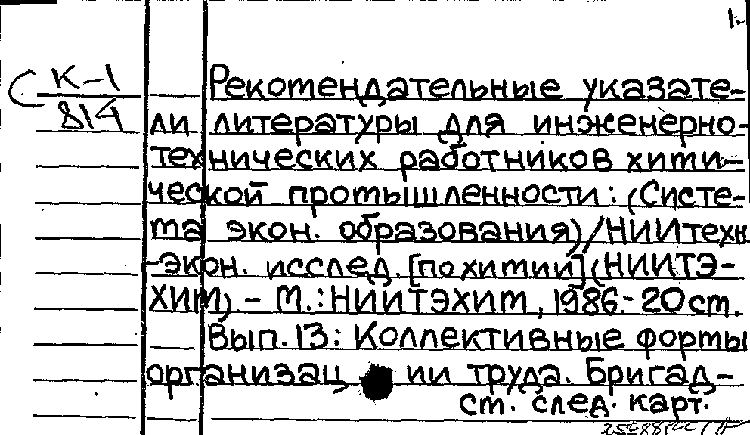 1.
К-1
814
Рекомендательные указате-
ли литературы для инженерно-
технических работников хими-
ческой промышленности: (Систе-
ма экон. образования)/НИИтехн
-экон. исслед. [по химии] (НИИТЭ-
ХИМ). - М.: НИИТЭХИМ, 1986.- 20 ст.
Вып. 13: Коллективные формы
организац ии труда. Бригад-
ст. след. карт.